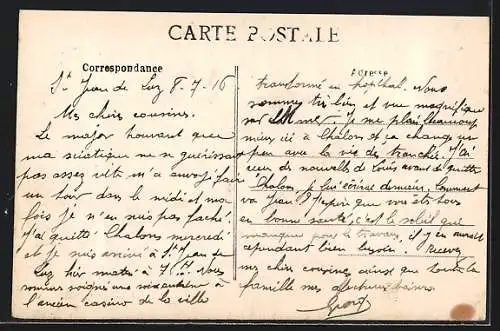 CARTE POSTALE
Correspondance
Adresse
St Jean de Luz 8-7-16
Mes chers cousins.
Le major trouvant que
ma sciatique ne se guérissait
pas assez vite m'a envoyé faire
un tour dans le midi et ma
fois je n'en suis pas fâché.
J'ai quitté Chalons mercredi
et je suis arrivé à St Jean de
Luz hier matin à 7H. Nous
sommes soignés
l'ancien casino de la ville
transformé en hôpital. Nous
sommes très bien et vue magnifique
sur la mer. Je me plais beaucoup
mieux ici à Chalons et ça change un
peu avec la vie des tranchées. J'ai
reçu des nouvelles de Louis avant de quitter
Chalons je lui écrirai demain. Comment
va Jean? J'espère que vous êtes tous
en bonne santé, c'est le soleil que
manque pour les travaux, il y en aurait
cependant bien besoin. Recevez
mes chers cousins ainsi que toute la
famille mes affectueux baisers